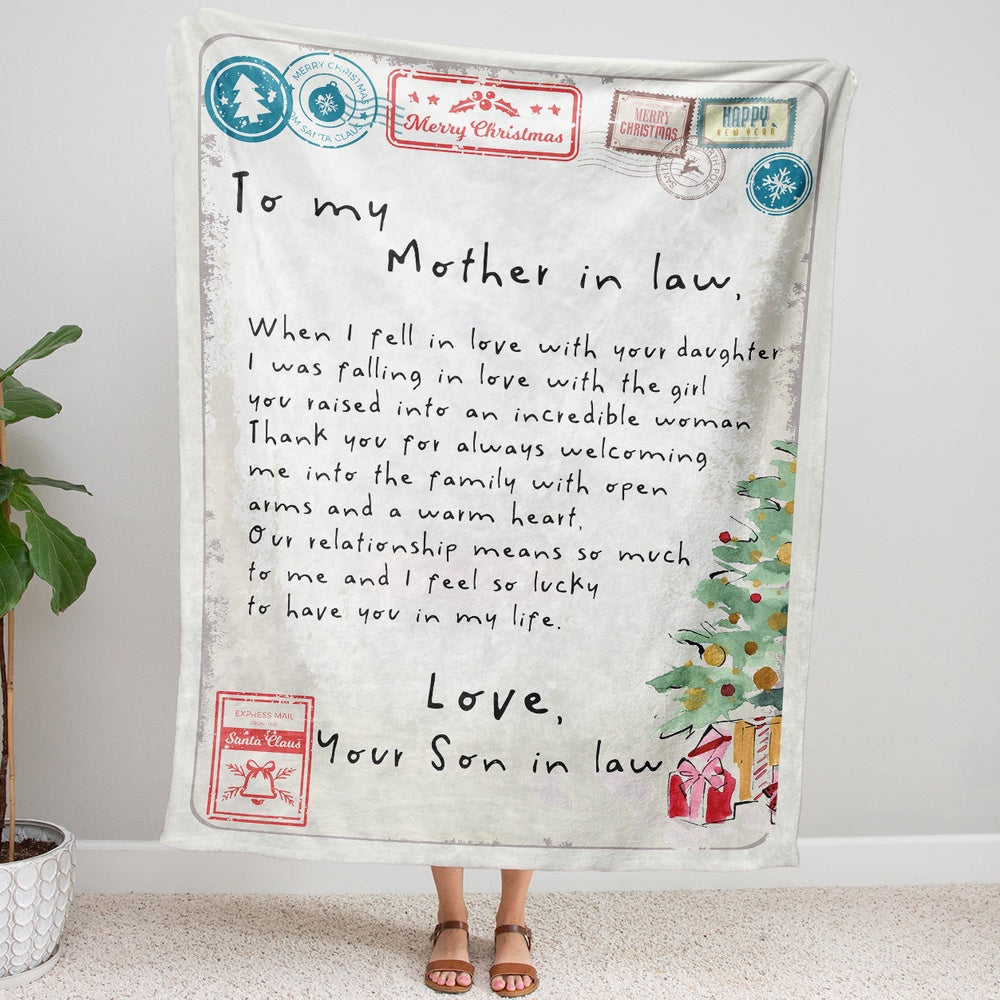 MERRY CHRISTMAS
FROM SANTA CLAUS
Merry Christmas
MERRY
CHRISTMAS
HAPPY
NEW YEAR
SANTA
NORTH POLE
To my
Mother in law,
When I fell in love with your daughter
I was falling in love with the girl
you raised into an incredible woman
Thank you for always welcoming
me into the family with open
arms and a warm heart,
Our relationship means so much
to me and I feel so lucky
to have you in my life.
Love,
Your Son in law
EXPRESS MAIL
FROM THE
Santa Claus